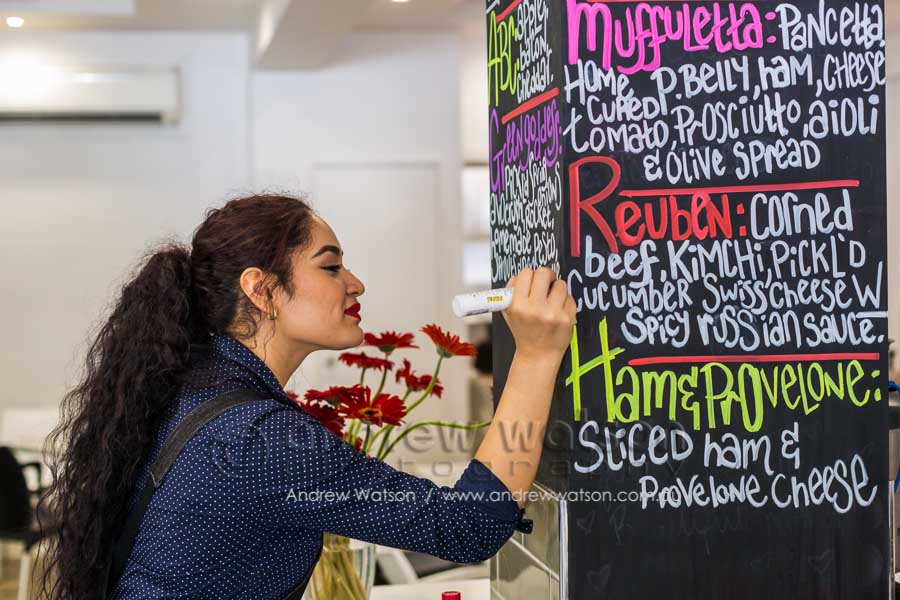 ABC: apple,
bacon,
cheddar.
Green goddess:
homemade pesto,
Muffuletta: Pancetta,
Home P. Belly, ham, cheese
cured
tomato, Prosciutto, aioli
& olive spread
Reuben: corned
beef, Kimchi, Pickl'd
cucumber Swiss cheese W
Spicy russian sauce.
Ham & Provelone:
Sliced ham &
Provelone Cheese
Andrew Watson
photography
Andrew Watson / www.andrewwatson.com.au